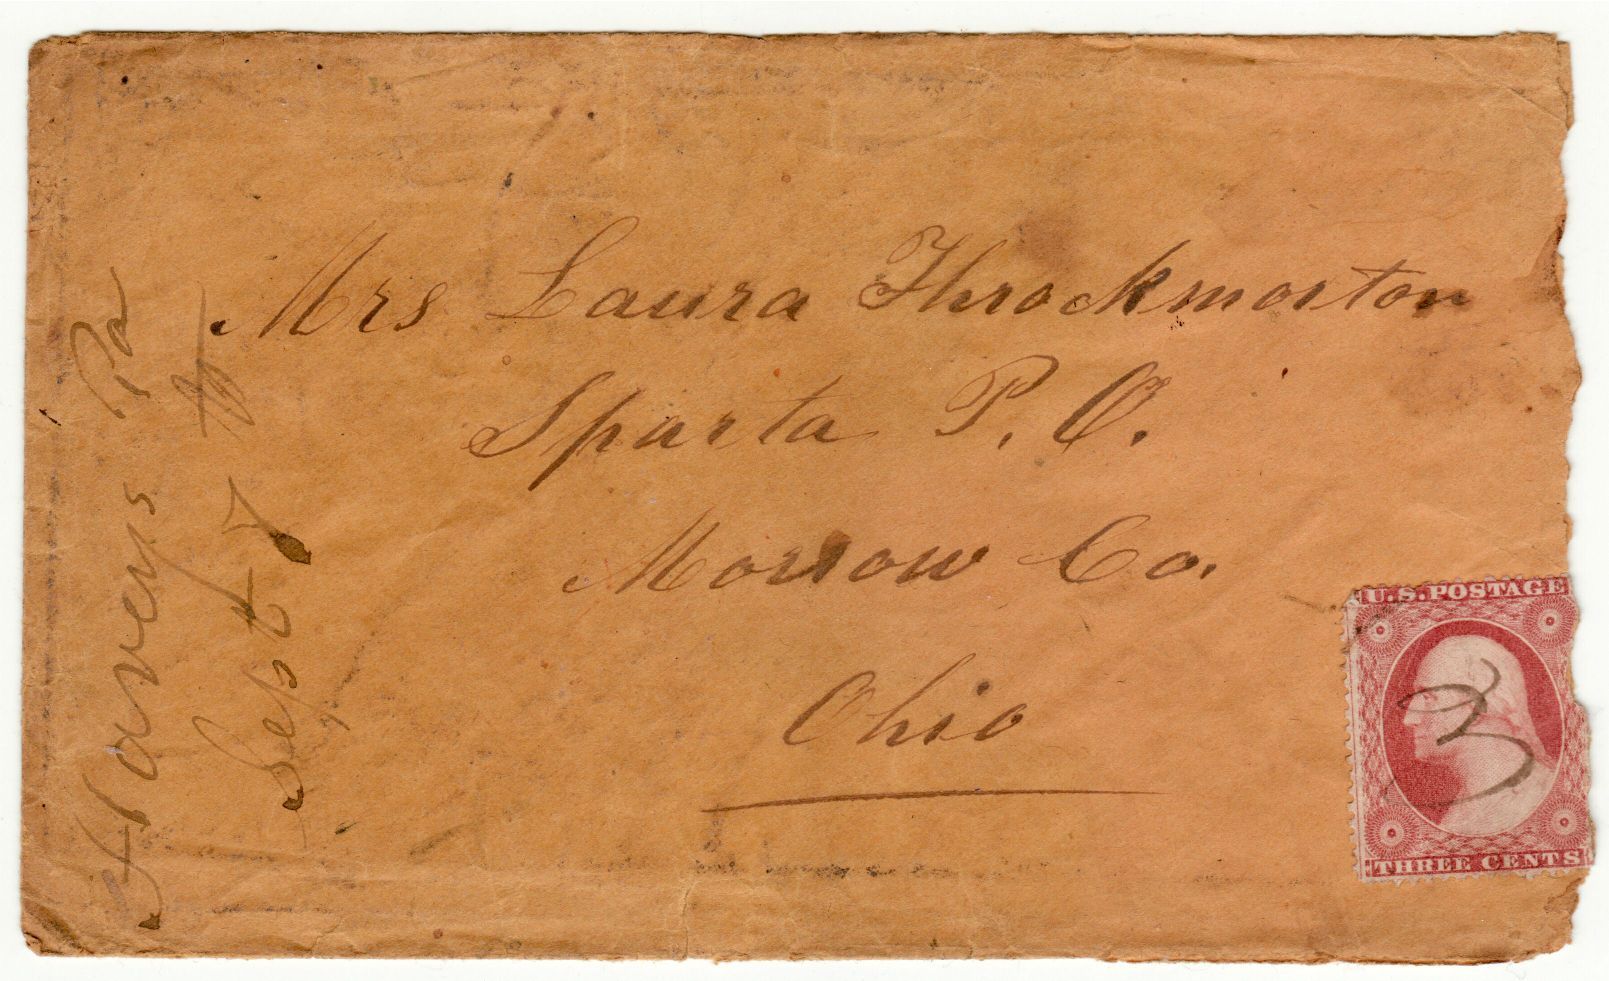 Mrs Laura Throckmorton
Sparta P. O.
Morrow Co.
Ohio
Harveys Pa
Sept 7
U.S. POSTAGE
3
THREE CENTS